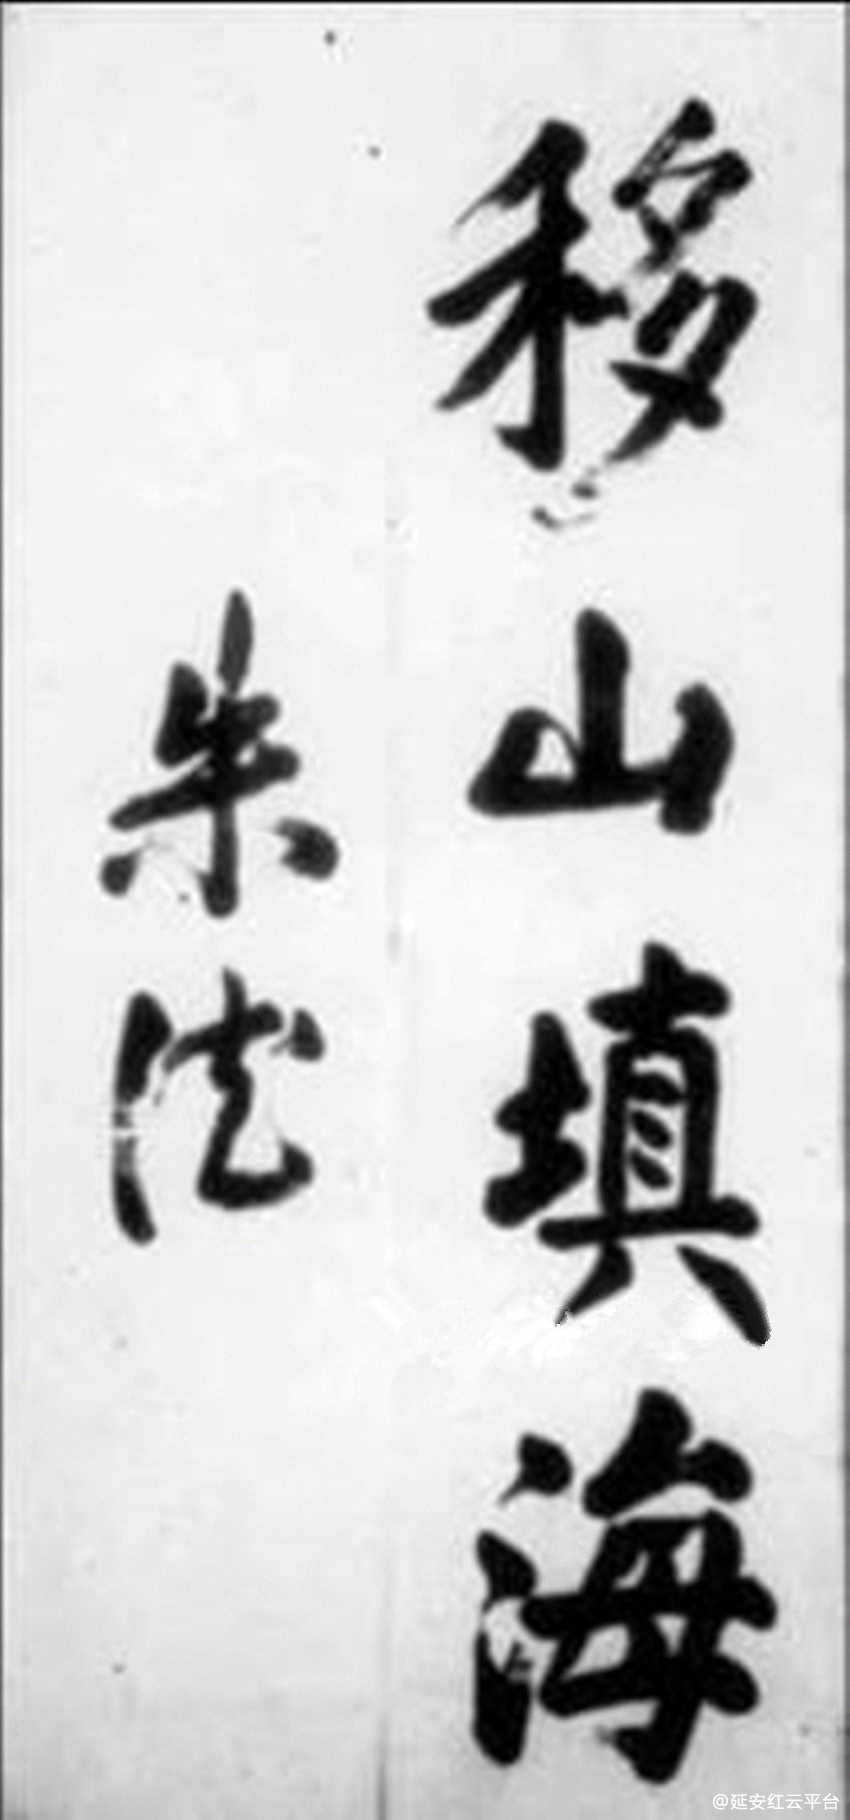 移山填海
朱德
@延安红云平台